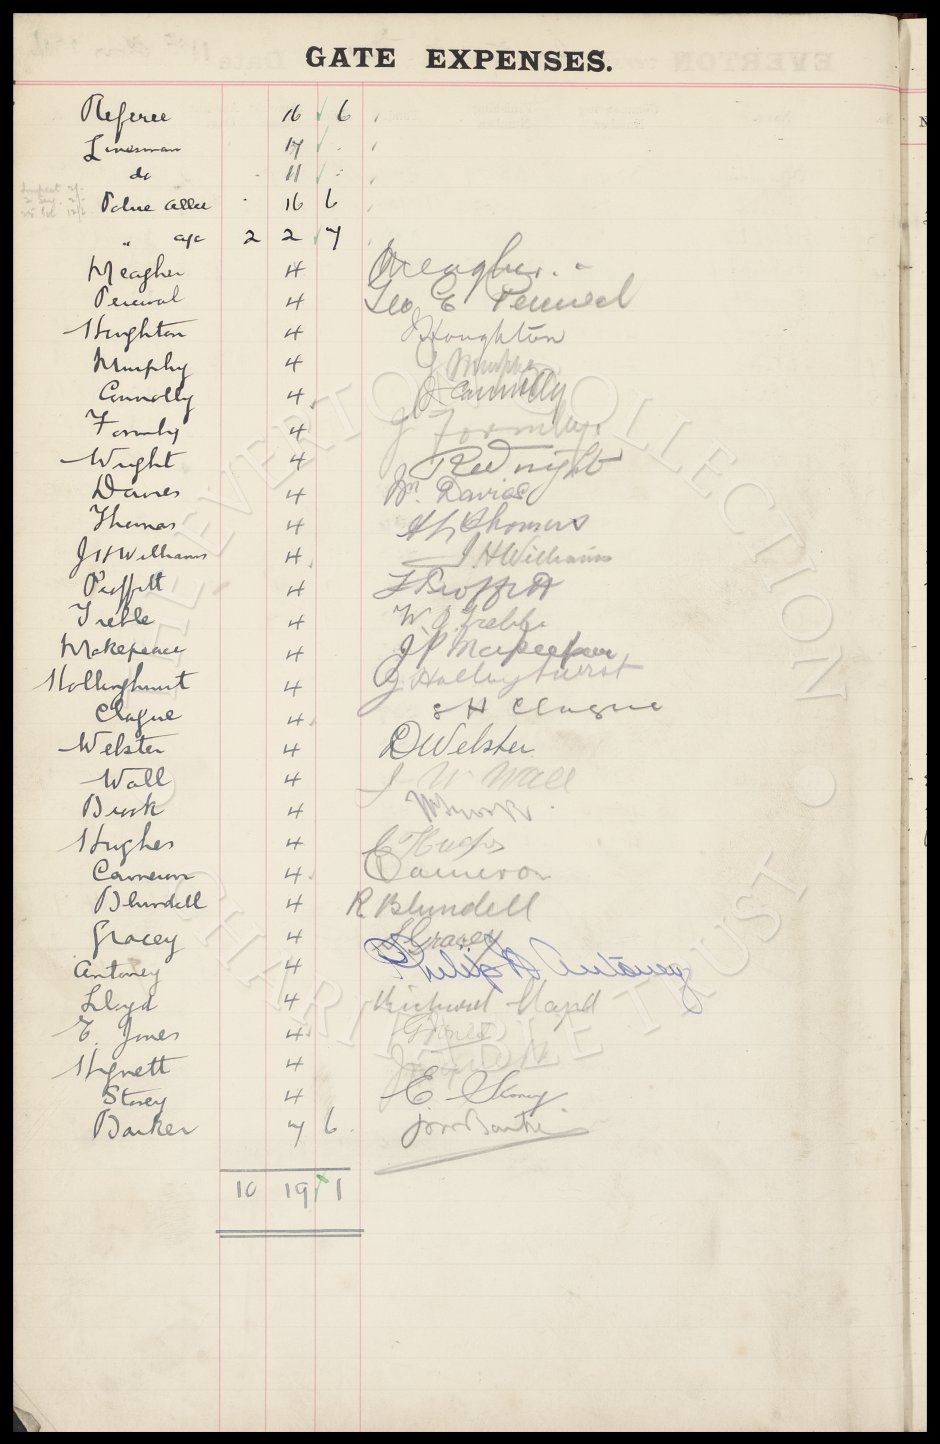 GATE EXPENSES.
Referee 16 6
Linesman 17 -
do 11 -
Police allce 16 6
" a/c 2 2 7
Meagher 4 Meagher.
Percival 4 Geo E Percival
Houghton 4 J Houghton
Murphy 4 J Murphy
Connolly 4 J Connolly
Formby 4 J Formby.
Wright 4
Davies 4 Wm. Davies
Thomas 4 Thomas
J H Williams 4 J. H Williams
Proffitt 4 F Proffitt
Treble 4 W. J. Treble
Makepeace 4 J P Makepeace
Hollinghurst 4 G Hollinghurst
Clague 4 H Clague
Webster 4 D Webster
Wall 4 J W Wall
Brook 4 Brook
Hughes 4 C Hughes
Cameron 4 Cameron
Blundell 4 R. Blundell
Gracey 4 Gracey
Antoney 4 Philip Antoney
Lloyd 4 Richard Lloyd
E. Jones 4 E Jones
Hignett 4
Storey 4 E Storey
Barker 7 6
10 19 1
THE EVERTON COLLECTION
CHARITABLE TRUST